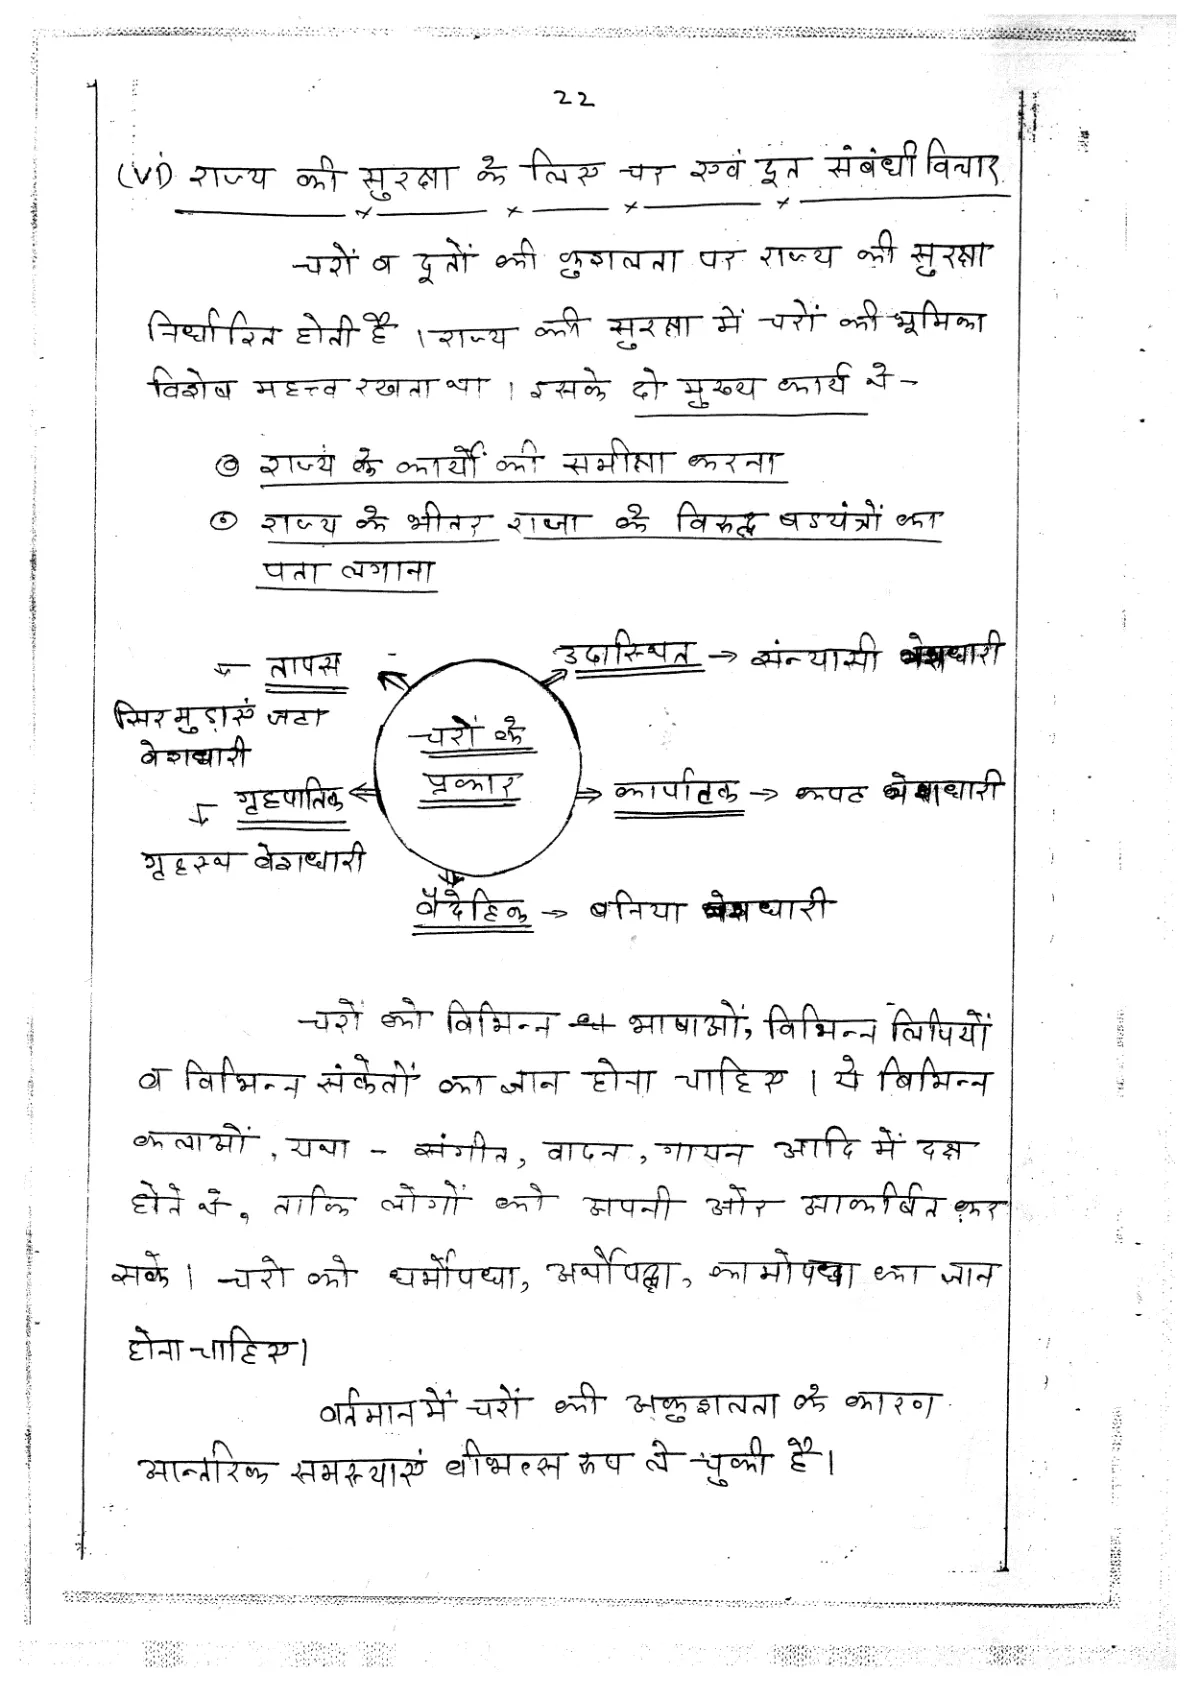 22
(VI) राज्य की सुरक्षा के लिए चर एवं दूत संबंधी विचार
चरों व दूतों की कुशलता पर राज्य की सुरक्षा
निर्धारित होती है। राज्य की सुरक्षा में चरों की भूमिका
विशेष महत्त्व रखता था। इसके दो मुख्य कार्य थे -
राज्य के कार्यों की समीक्षा करना
राज्य के भीतर राजा के विरुद्ध षडयंत्रों का
पता लगाना
तापस
सिर मुड़ाए जटा
वेशधारी
उदास्थित → संन्यासी वेशधारी
चरों के
प्रकार
गृहपातिक
गृहस्थ वेशधारी
कार्पाटक → कपट वेशधारी
वैदेहिक → बनिया वेशधारी
चरों को विभिन्न भाषाओं, विभिन्न लिपियों
व विभिन्न संकेतों का ज्ञान होना चाहिए। ये विभिन्न
कलाओं, यथा - संगीत, वादन, गायन आदि में दक्ष
होते थे, ताकि लोगों को अपनी ओर आकर्षित कर
सके। चरो को धर्मोपधा, अर्थोपधा, कामोपधा का ज्ञान
होना चाहिए।
वर्तमान में चरों की अकुशलता के कारण
आन्तरिक समस्याएं वीभत्स रूप ले चुकी है।